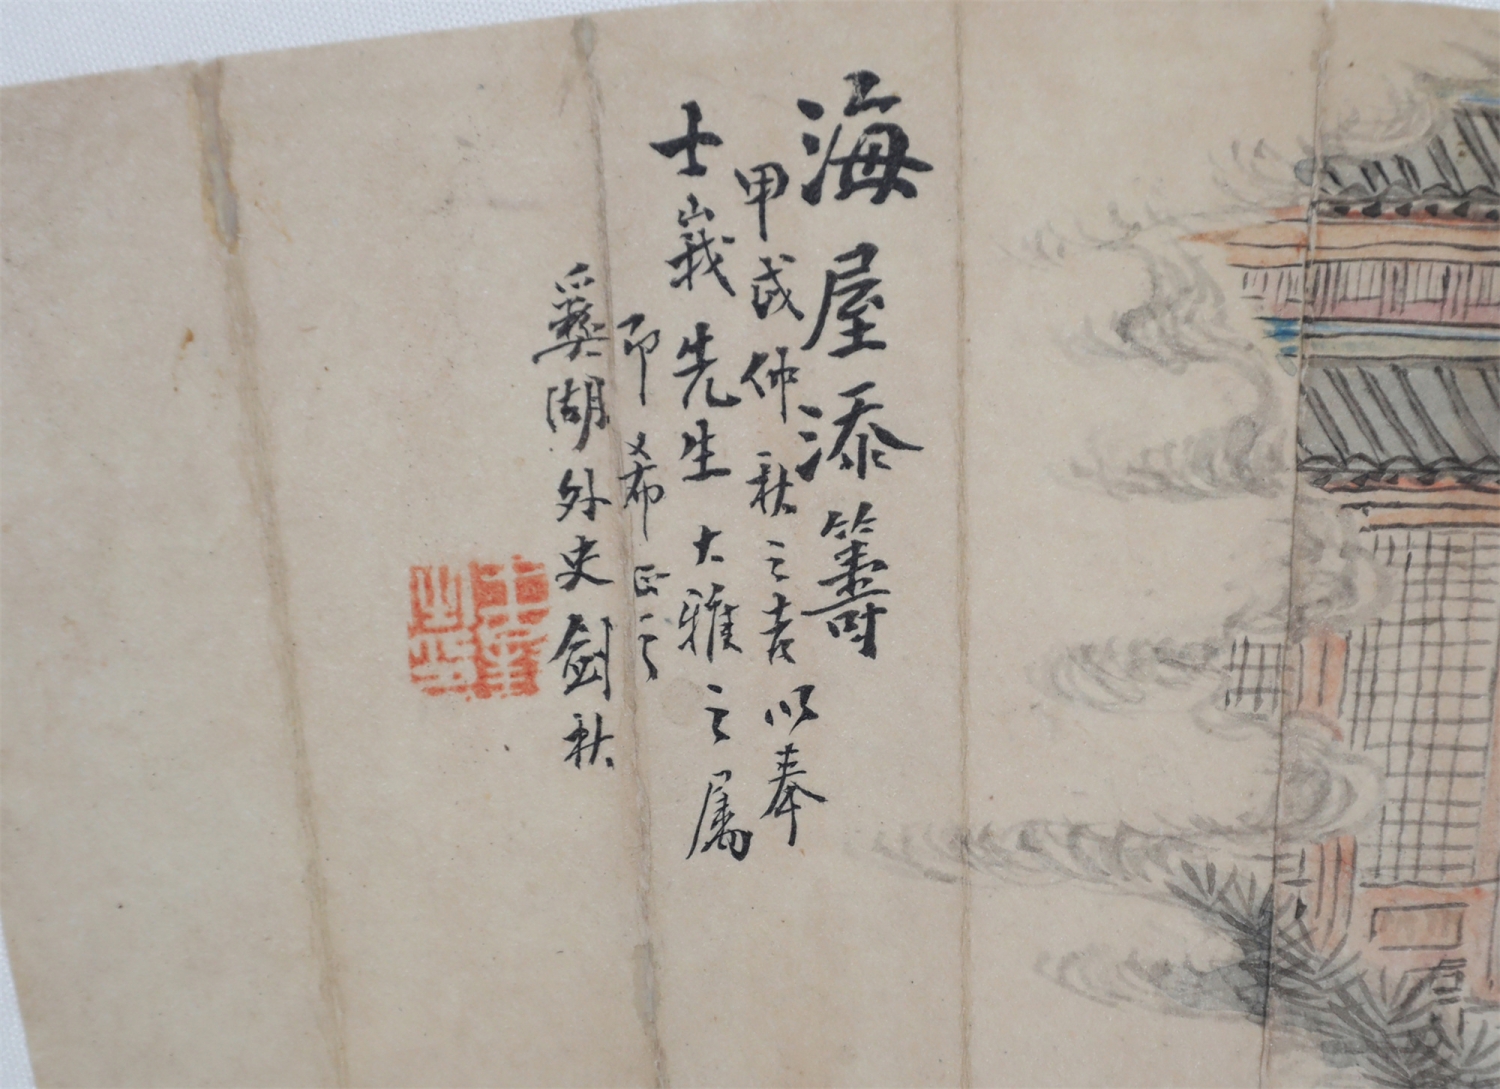 海屋添籌
甲戌仲秋之吉以奉
士峩先生大雅之属
即希正之
奚湖外史剑秋